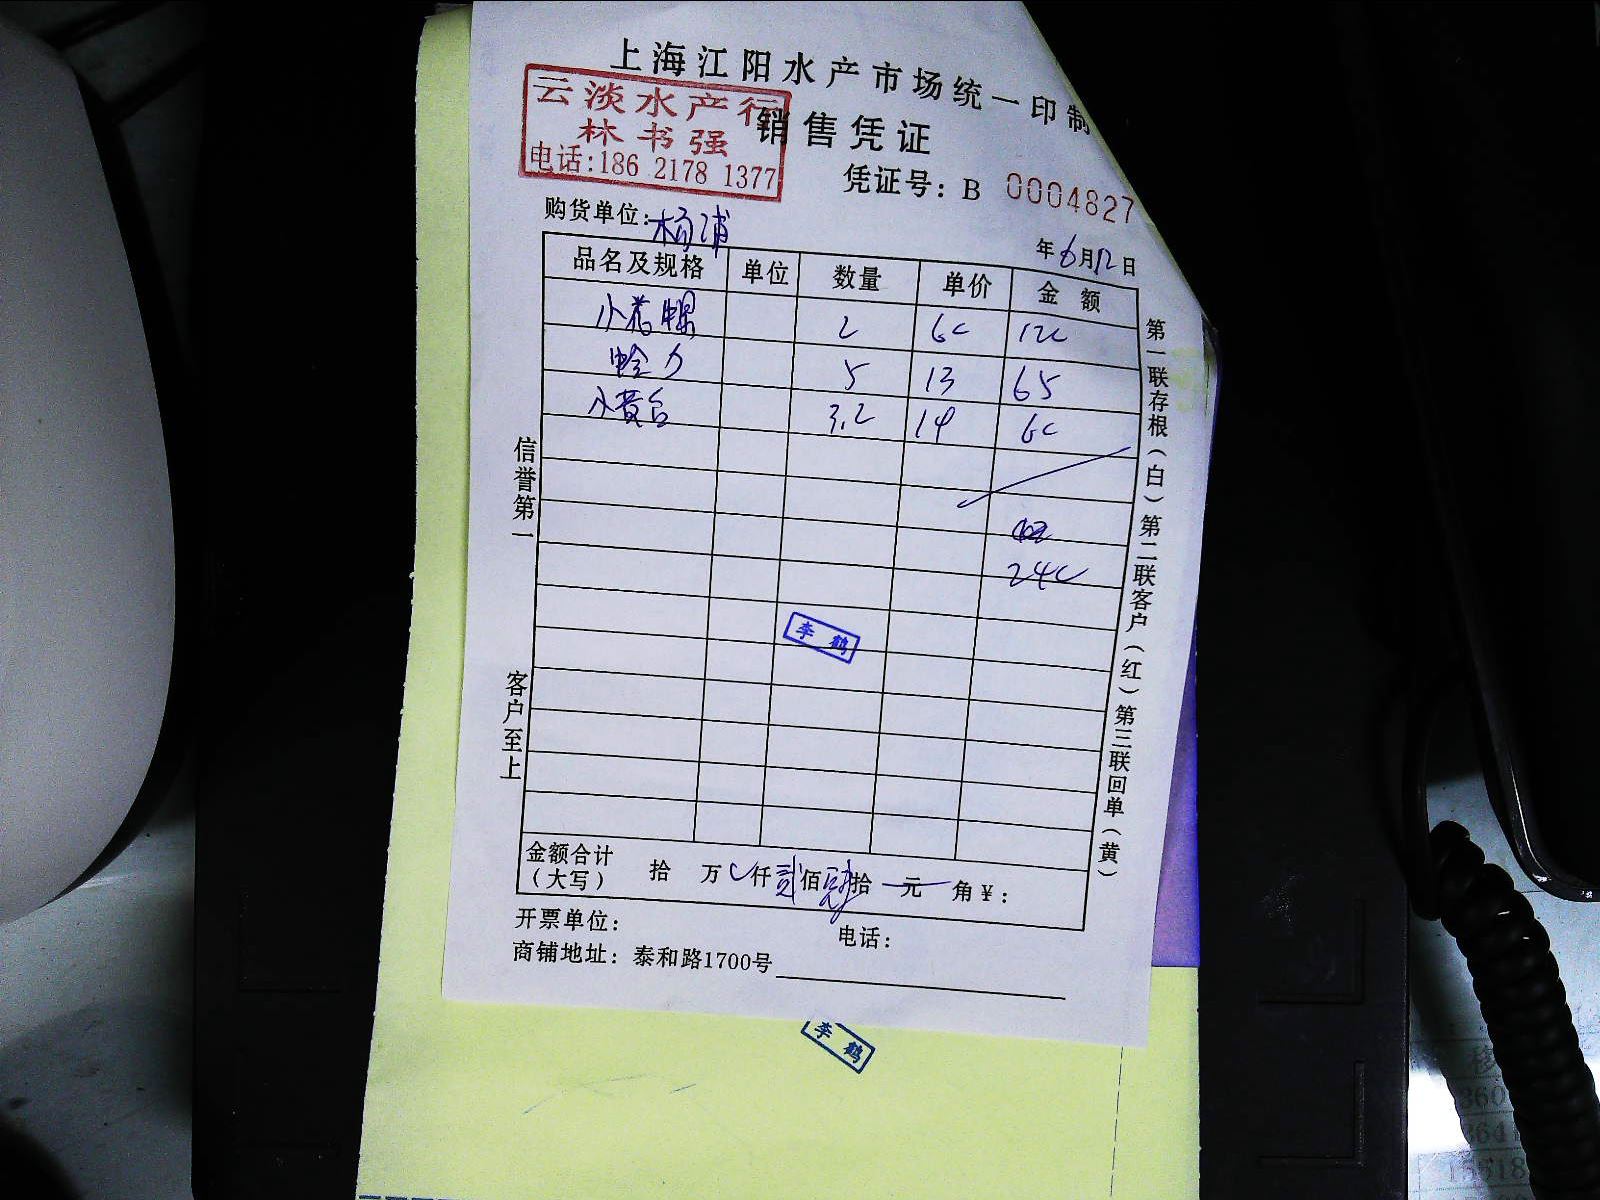 上海江阳水产市场统一印制
云淡水产行
林书强
电话:186 2178 1377
销售凭证
凭证号: B 0004827
购货单位: 杨浦
年 6月12日
品名及规格 单位 数量 单价 金额
小 2 60 120
蛤力 5 13 65
小黄 3.2 19 60
240
李鹤
信誉第一
客户至上
第一联存根（白）第二联客户（红）第三联回单（黄）
金额合计（大写） 拾 万 仟 贰佰 拾 元 角 ¥:
开票单位:
电话:
商铺地址: 泰和路1700号
李鹤
移
360
364
15518